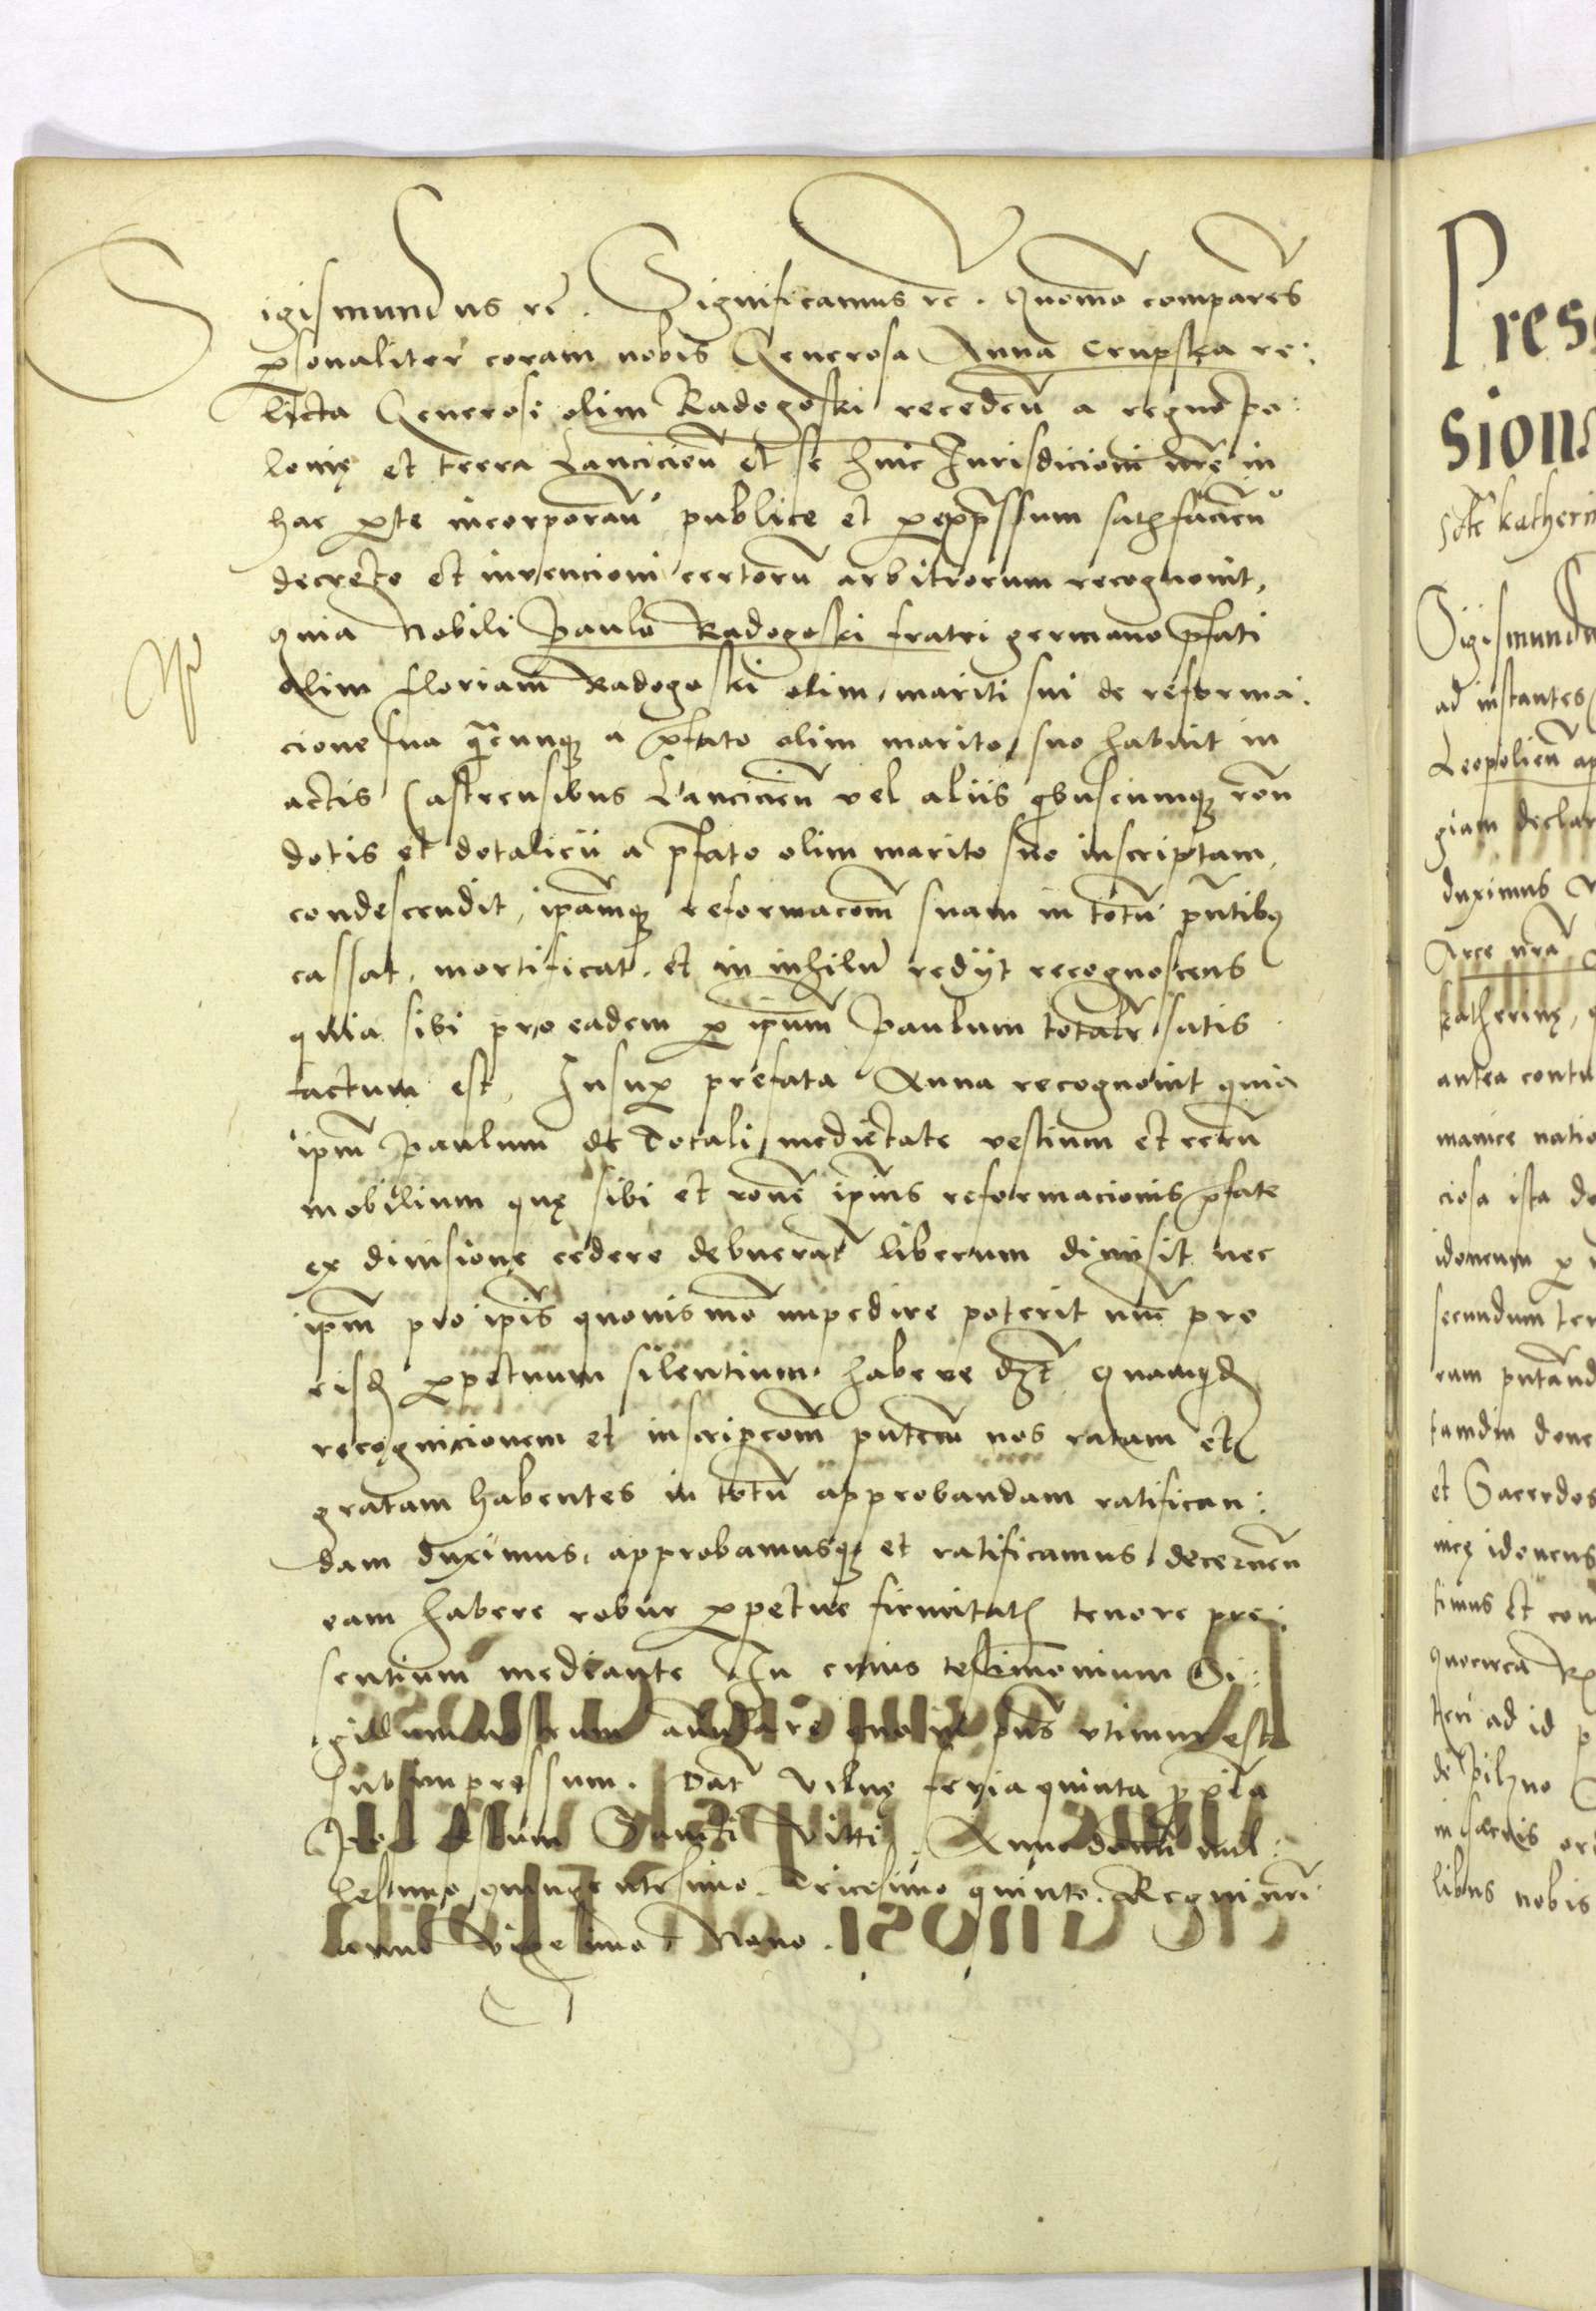 Sigismundus rc̃. Significamus rc̃. Quom̃o comparẽs
p̱sonaliter coram nobis Generosa Anna Crupska re:
licta Generosi olim Radogoski recedeñ a regno po:
lonię et terra Lancicień et se huic Jurisdicioni nr̃e in
hac p̱te incorporañ publice et p̱ exp̃ssum sat̃hfacieñ
decreto et invencioni certorũ arbitrorum recognovit,
quia Nobili Paulo Radogoski fratri germano p̃fati
olim floriani Radogoski olim mariti sui de reforma:
cione sua q̃cunq₃ a p̃fato olim marito suo habuit in
actis Castrensibus Lancicień vel aliis q̃buscumq₃ roñ
dotis et dotalicii a p̃fato olim marito suo inscriptam,
condescendit, ip̃amq₃ reformacom̃ suam in totũ p̃ntibꝯ
cassat, mortificat et in nihilũ redijt recognoscens
quia sibi pro eadem p̱ ip̃um Paulum totalr̃ satis
factum est, Insup̱ prefata Anna recognovit quia
ip̃m Paulum de totali medietate vestium et rerũ
mobilium quę sibi et roñe ip̃ius reformacionis p̃fate
ex divisione cedere debuerat liberum dimisit nec
ip̃m pro ip̃is quovismõ impedire poterit nunc pro
eisd̃ p̱petuum silentium habere d̃zt Quamq̃d̃
recognicionem et inscripcom̃ p̃nteñ nos ratam et
gratam habentes in totũ approbandam ratifican:
dam duximus, approbamusq₃ et ratificamus, decerneñ
eam habere robur p̱petue firmitatꝭ tenore pre:
sentium mediante In cuius testimonium Si:
gillum nostrum anulare quo in p̃ns utimur est
subimpressum. Dat̃ Vilnę feria quinta p̃xĩa
post festum Sancti Vitti, Anno domĩ mil:
lesimo quingentesimo Tricesimo quinto. Regni nr̃i
anno Vigesimo Nono.
Pres
sion
katheri
Sigismundu
ad instantes
Leopolień ap
giam declar
duximus
Arce nr̃a
katherinę,
antea contu
manice natio
ciosa ista do
idoneum p̱
secundum ten
eam p̃ntand
tamdiu done
et Sacerdos
nięę idoneus
timus et con
quocirca
teñ ad id p
de Pilzno
in sacris ord
libus nobis